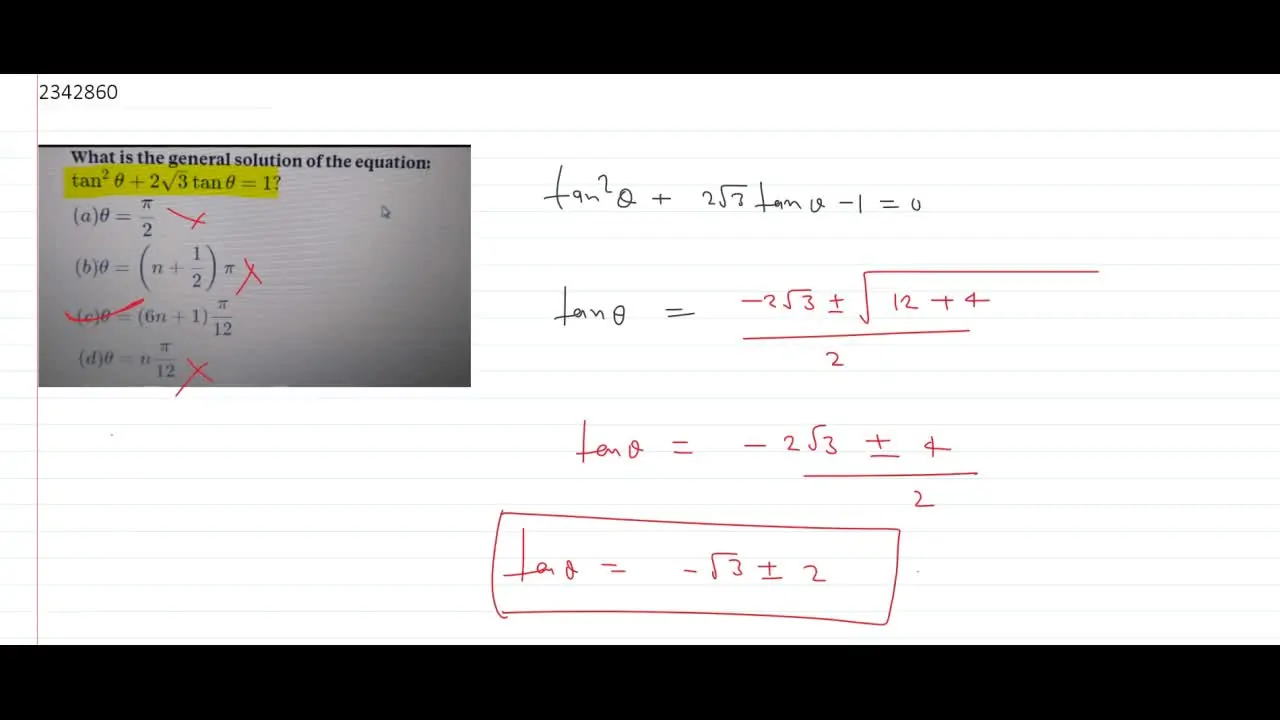 2342860
What is the general solution of the equation:
tan² θ + 2√3 tan θ = 1?
(a)θ = π/2
(b)θ = (n + 1/2) π
(c)θ = (6n + 1) π/12
(d)θ = n π/12
tan²θ + 2√3 tanθ - 1 = 0
tanθ = (-2√3 ± √(12 + 4))/2
tanθ = -2√3 ± 4/2
tanθ = -√3 ± 2